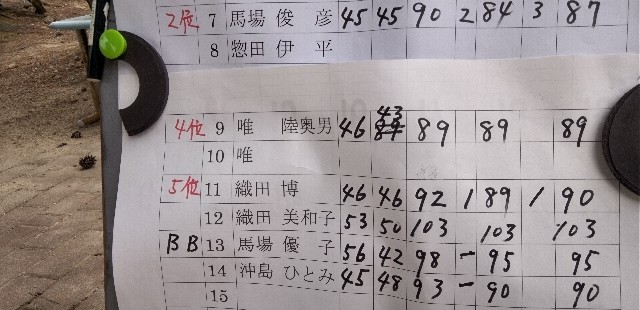 2位 7 馬場 俊 彦 45 45 90 2 84 3 87
8 惣田 伊 平
4位 9 唯 陸奥男 46 43 89 89 89
10 唯
5位 11 織田 博 46 46 92 1 89 1 90
12 織田 美和子 53 50 103 103 103
BB 13 馬場 優 子 56 42 98 - 95 95
14 沖島 ひとみ 45 48 93 - 90 90
15